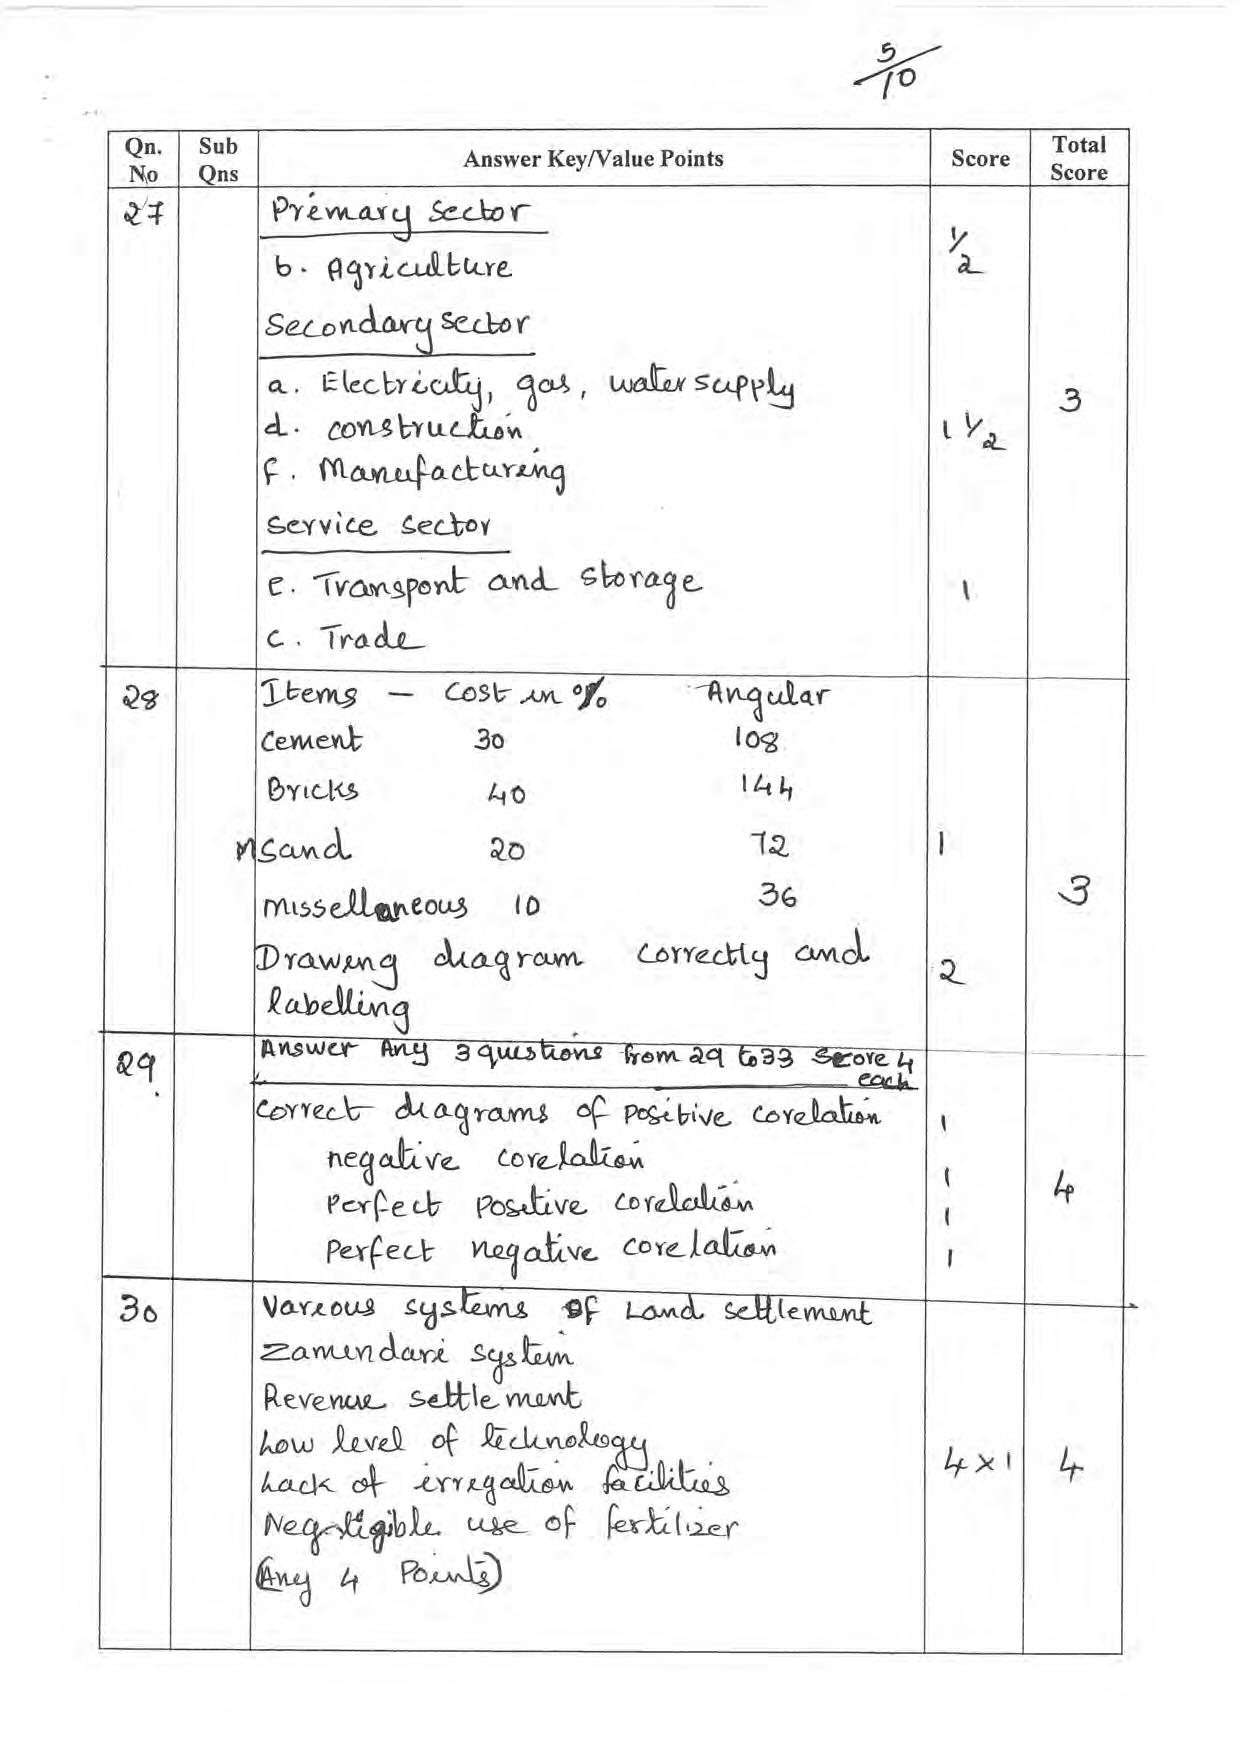 5/10
Qn. No Sub Qns Answer Key/Value Points Score Total Score
27 Primary sector
b. Agriculture 1/2
Secondary sector
a. Electricity, gas, water supply 3
d. construction 1 1/2
f. Manufacturing
Service sector
e. Transport and storage 1
c. Trade
28 Items - Cost in % Angular
Cement 30 108
Bricks 40 144
Msand 20 72 1
missellaneous 10 36 3
Drawing diagram correctly and 2
labelling
29 Answer Any 3 questions from 29 to 33 Score 4
each
Correct diagrams of positive corelation 1
negative corelation 1 4
Perfect positive corelation 1
Perfect negative corelation 1
30 Various systems of Land settlement
Zamindari system
Revenue settlement
Low level of technology 4 x 1 4
Lack of irregation facilities
Negligible use of fertilizer
(Any 4 Points)